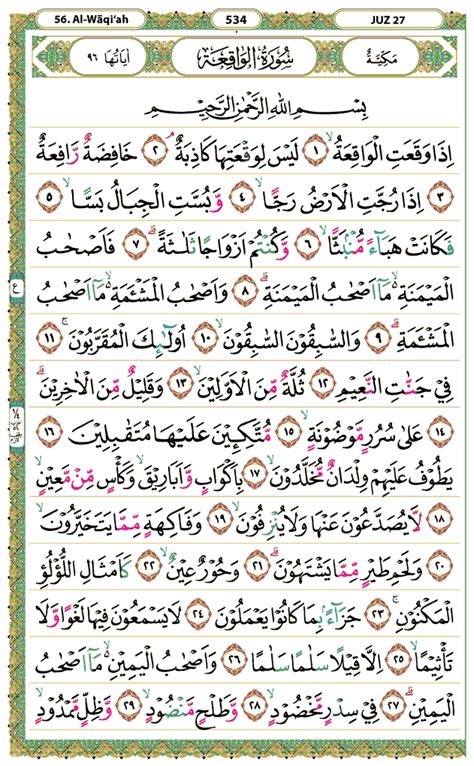 56. Al-Wāqi‘ah
534
JUZ 27
مَكِّيَّةٌ
سُوْرَةُ الْوَاقِعَةِ
اٰيَاتُهَا ٩٦
بِسْمِ اللّٰهِ الرَّحْمٰنِ الرَّحِيْمِ
اِذَا وَقَعَتِ الْوَاقِعَةُۙ ١ لَيْسَ لِوَقْعَتِهَا كَاذِبَةٌۘ ٢ خَافِضَةٌ رَّافِعَةٌ
٣ اِذَا رُجَّتِ الْاَرْضُ رَجًّاۙ ٤ وَّبُسَّتِ الْجِبَالُ بَسًّاۙ ٥
فَكَانَتْ هَبَاۤءً مُّنْۢبَثًّاۙ ٦ وَّكُنْتُمْ اَزْوَاجًا ثَلٰثَةًۗ ٧ فَاَصْحٰبُ
الْمَيْمَنَةِ ەۙ مَآ اَصْحٰبُ الْمَيْمَنَةِۗ ٨ وَاَصْحٰبُ الْمَشْـَٔمَةِ ەۙ مَآ اَصْحٰبُ
الْمَشْـَٔمَةِۗ ٩ وَالسّٰبِقُوْنَ السّٰبِقُوْنَۙ ١٠ اُولٰۤىِٕكَ الْمُقَرَّبُوْنَۚ ١١
ع
فِيْ جَنّٰتِ النَّعِيْمِ ١٢ ثُلَّةٌ مِّنَ الْاَوَّلِيْنَۙ ١٣ وَقَلِيْلٌ مِّنَ الْاٰخِرِيْنَۗ
١٤ عَلٰى سُرُرٍ مَّوْضُوْنَةٍۙ ١٥ مُّتَّكِـِٕيْنَ عَلَيْهَا مُتَقٰبِلِيْنَ ١٦
يَطُوْفُ عَلَيْهِمْ وِلْدَانٌ مُّخَلَّدُوْنَۙ ١٧ بِاَكْوَابٍ وَّاَبَارِيْقَۙ وَكَأْسٍ مِّنْ مَّعِيْنٍۙ
١٨ لَّا يُصَدَّعُوْنَ عَنْهَا وَلَا يُنْزِفُوْنَۙ ١٩ وَفَاكِهَةٍ مِّمَّا يَتَخَيَّرُوْنَۙ
٢٠ وَلَحْمِ طَيْرٍ مِّمَّا يَشْتَهُوْنَۗ ٢١ وَحُوْرٌ عِيْنٌۙ ٢٢ كَاَمْثَالِ اللُّؤْلُؤِ
الْمَكْنُوْنِۚ ٢٣ جَزَاۤءًۢ بِمَا كَانُوْا يَعْمَلُوْنَ ٢٤ لَا يَسْمَعُوْنَ فِيْهَا لَغْوًا وَّلَا
تَأْثِيْمًاۙ ٢٥ اِلَّا قِيْلًا سَلٰمًا سَلٰمًا ٢٦ وَاَصْحٰبُ الْيَمِيْنِ ەۙ مَآ اَصْحٰبُ
الْيَمِيْنِۗ ٢٧ فِيْ سِدْرٍ مَّخْضُوْدٍۙ ٢٨ وَّطَلْحٍ مَّنْضُوْدٍۙ ٢٩ وَّظِلٍّ مَّمْدُوْدٍۙ